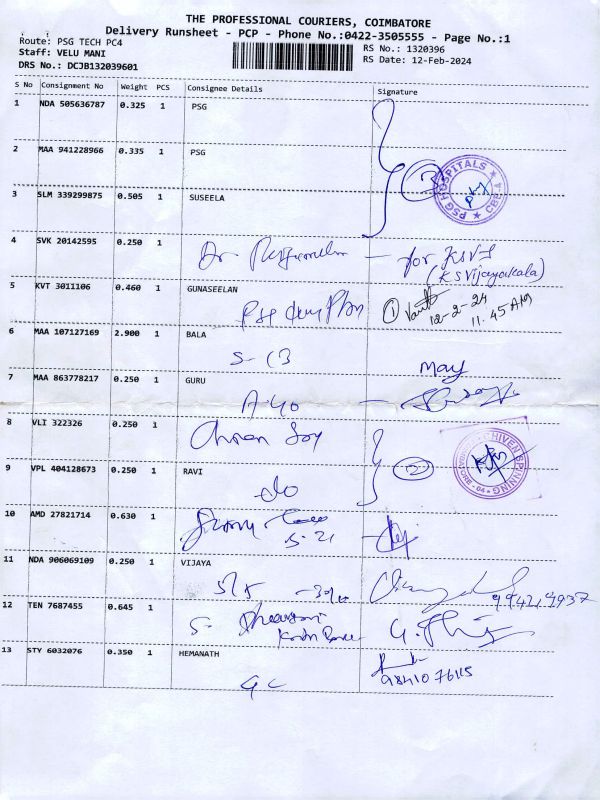 THE PROFESSIONAL COURIERS, COIMBATORE
Delivery Runsheet - PCP - Phone No.:0422-3505555 - Page No.:1
Route: PSG TECH PC4
RS No.: 1320396
Staff: VELU MANI
RS Date: 12-Feb-2024
DRS No.: DCJB132039601
S No Consignment No Weight PCS Consignee Details Signature
1 NDA 505636787 0.325 1 PSG
2 MAA 941228966 0.335 1 PSG
3
PSG HOSPITALS ★ CBE-4 ★
3 SLM 339299875 0.505 1 SUSEELA
4 SVK 20142595 0.250 1
Dr. — for KSVJ
(KSVijayakala)
5 KVT 3011106 0.460 1 GUNASEELAN
1
12-2-24
11.45 AM
6 MAA 107127169 2.900 1 BALA
S-13
May
7 MAA 863778217 0.250 1 GURU
A-40
8 VLI 322326 0.250 1
2
SPINNING
9 VPL 404128673 0.250 1 RAVI
do
10 AMD 27821714 0.630 1
S-21
11 NDA 906069109 0.250 1 VIJAYA
12 TEN 7687455 0.645 1
13 STY 6032076 0.350 1 HEMANATH